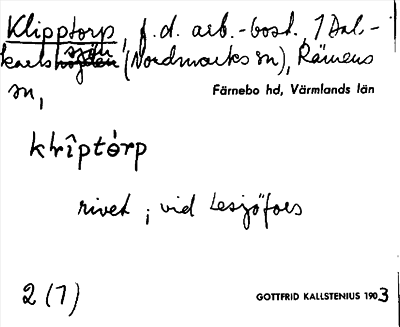 Klipptorp, f.d. arb.-bost., 1 Dal-
sjön
karls (Nordmarks sn), Rämens
sn,
Färnebo hd, Värmlands län
klîptórp
rivet ; vid Lesjöfors
2 (1)
GOTTFRID KALLSTENIUS 1903